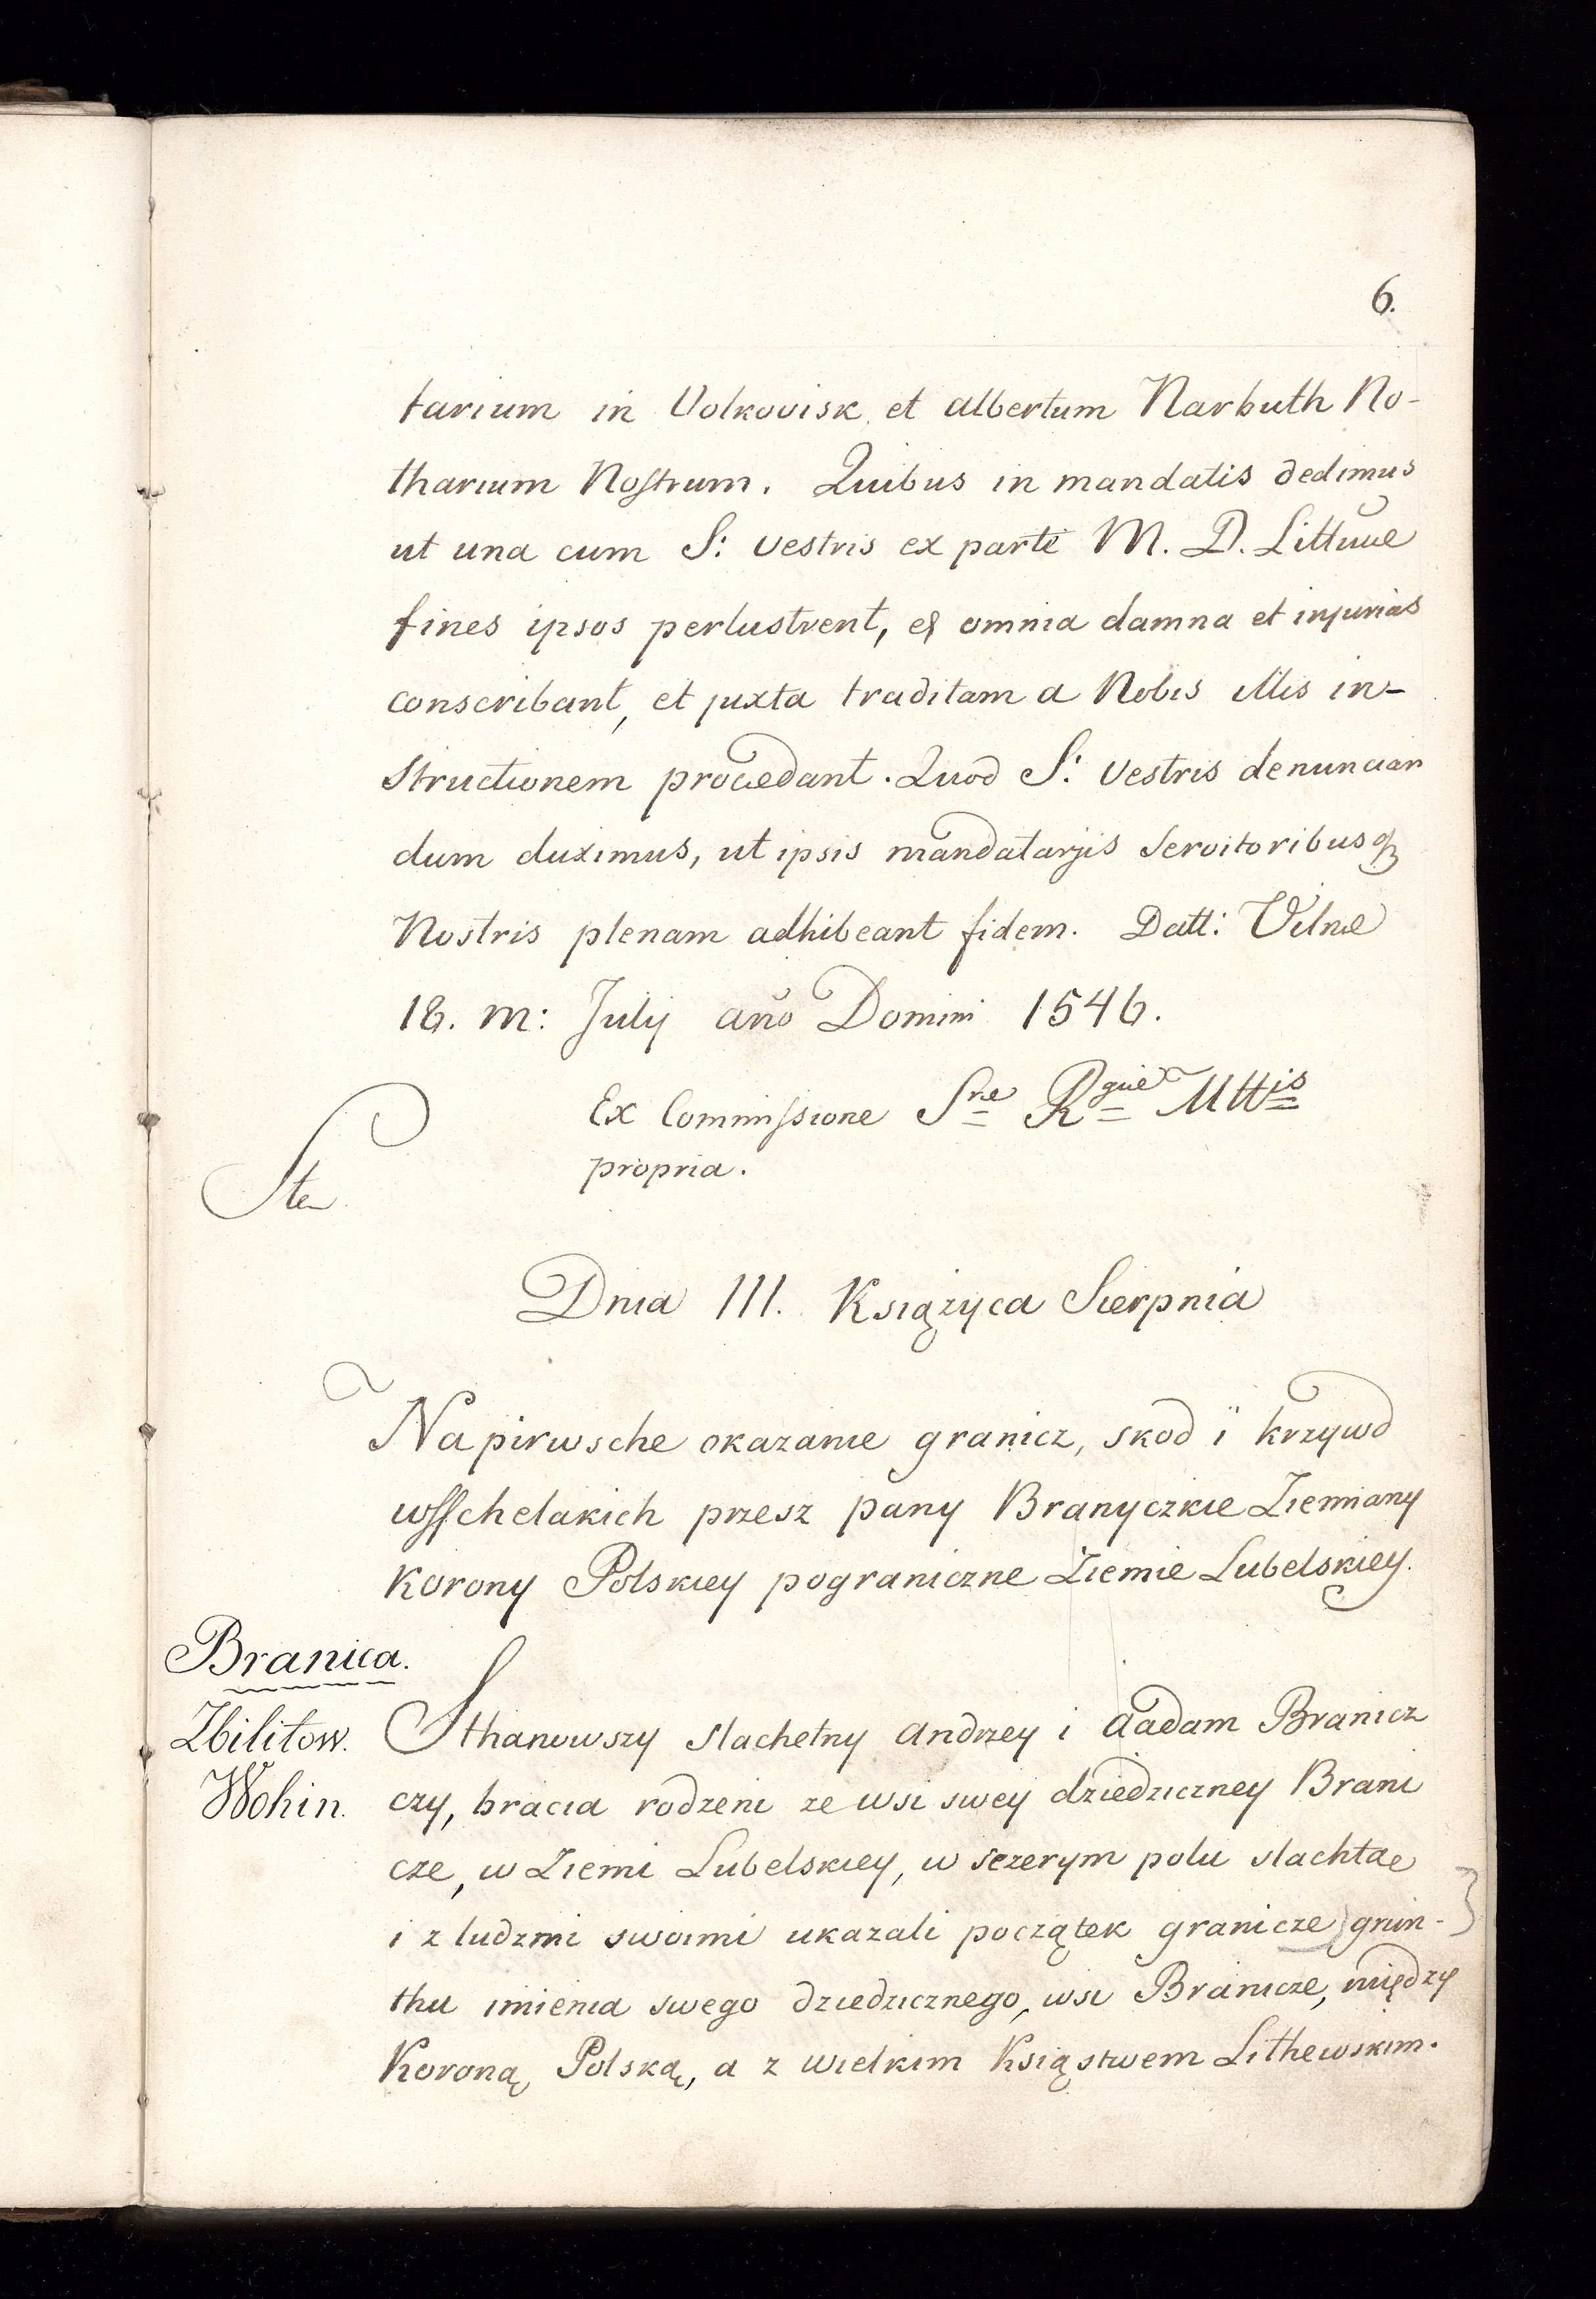 6.
tarium in Volkovisk et albertum Narbuth No-
tharium Nostrum. Quibus in mandatis dedimus
ut una cum S: vestris ex parte M. D. Littuae
fines ipsos perlustrent, et omnia damna et injurias
conscribant, et juxta traditam a Nobis illis in-
structionem procedant. Quod S: vestris denuncian
dum duximus, ut ipsis mandatarjis Servitoribusq
Nostris plenam adhibeant fidem. Datt: Vilnae
18. m: July año Domini 1546.
Ex Commissione Sne Rgie Mttis
propria.
Ste
Dnia III. Księżyca Sierpnia
Na pirwsche okazanie granicz, skod i krzywd
wsschelakich przesz pany Branyczkie Ziemiany
Korony Polskiey pograniczne Ziemie Lubelskiey.
Branica.
Zbilitow.
Wohin.
Sthanowszy slachetny Andrzey i Aadam Branicz
czy, bracia rodzeni ze wsi swey dziedziczney Brani
cze, w Ziemi Lubelskiey, w sczerym polu slachtae
i z ludzmi swoimi ukazali początek granicze grun-
thu imienia swego dziedzicznego, wsi Branicze, między
Koroną Polską, a z wielkim Księstwem Lithewskim.